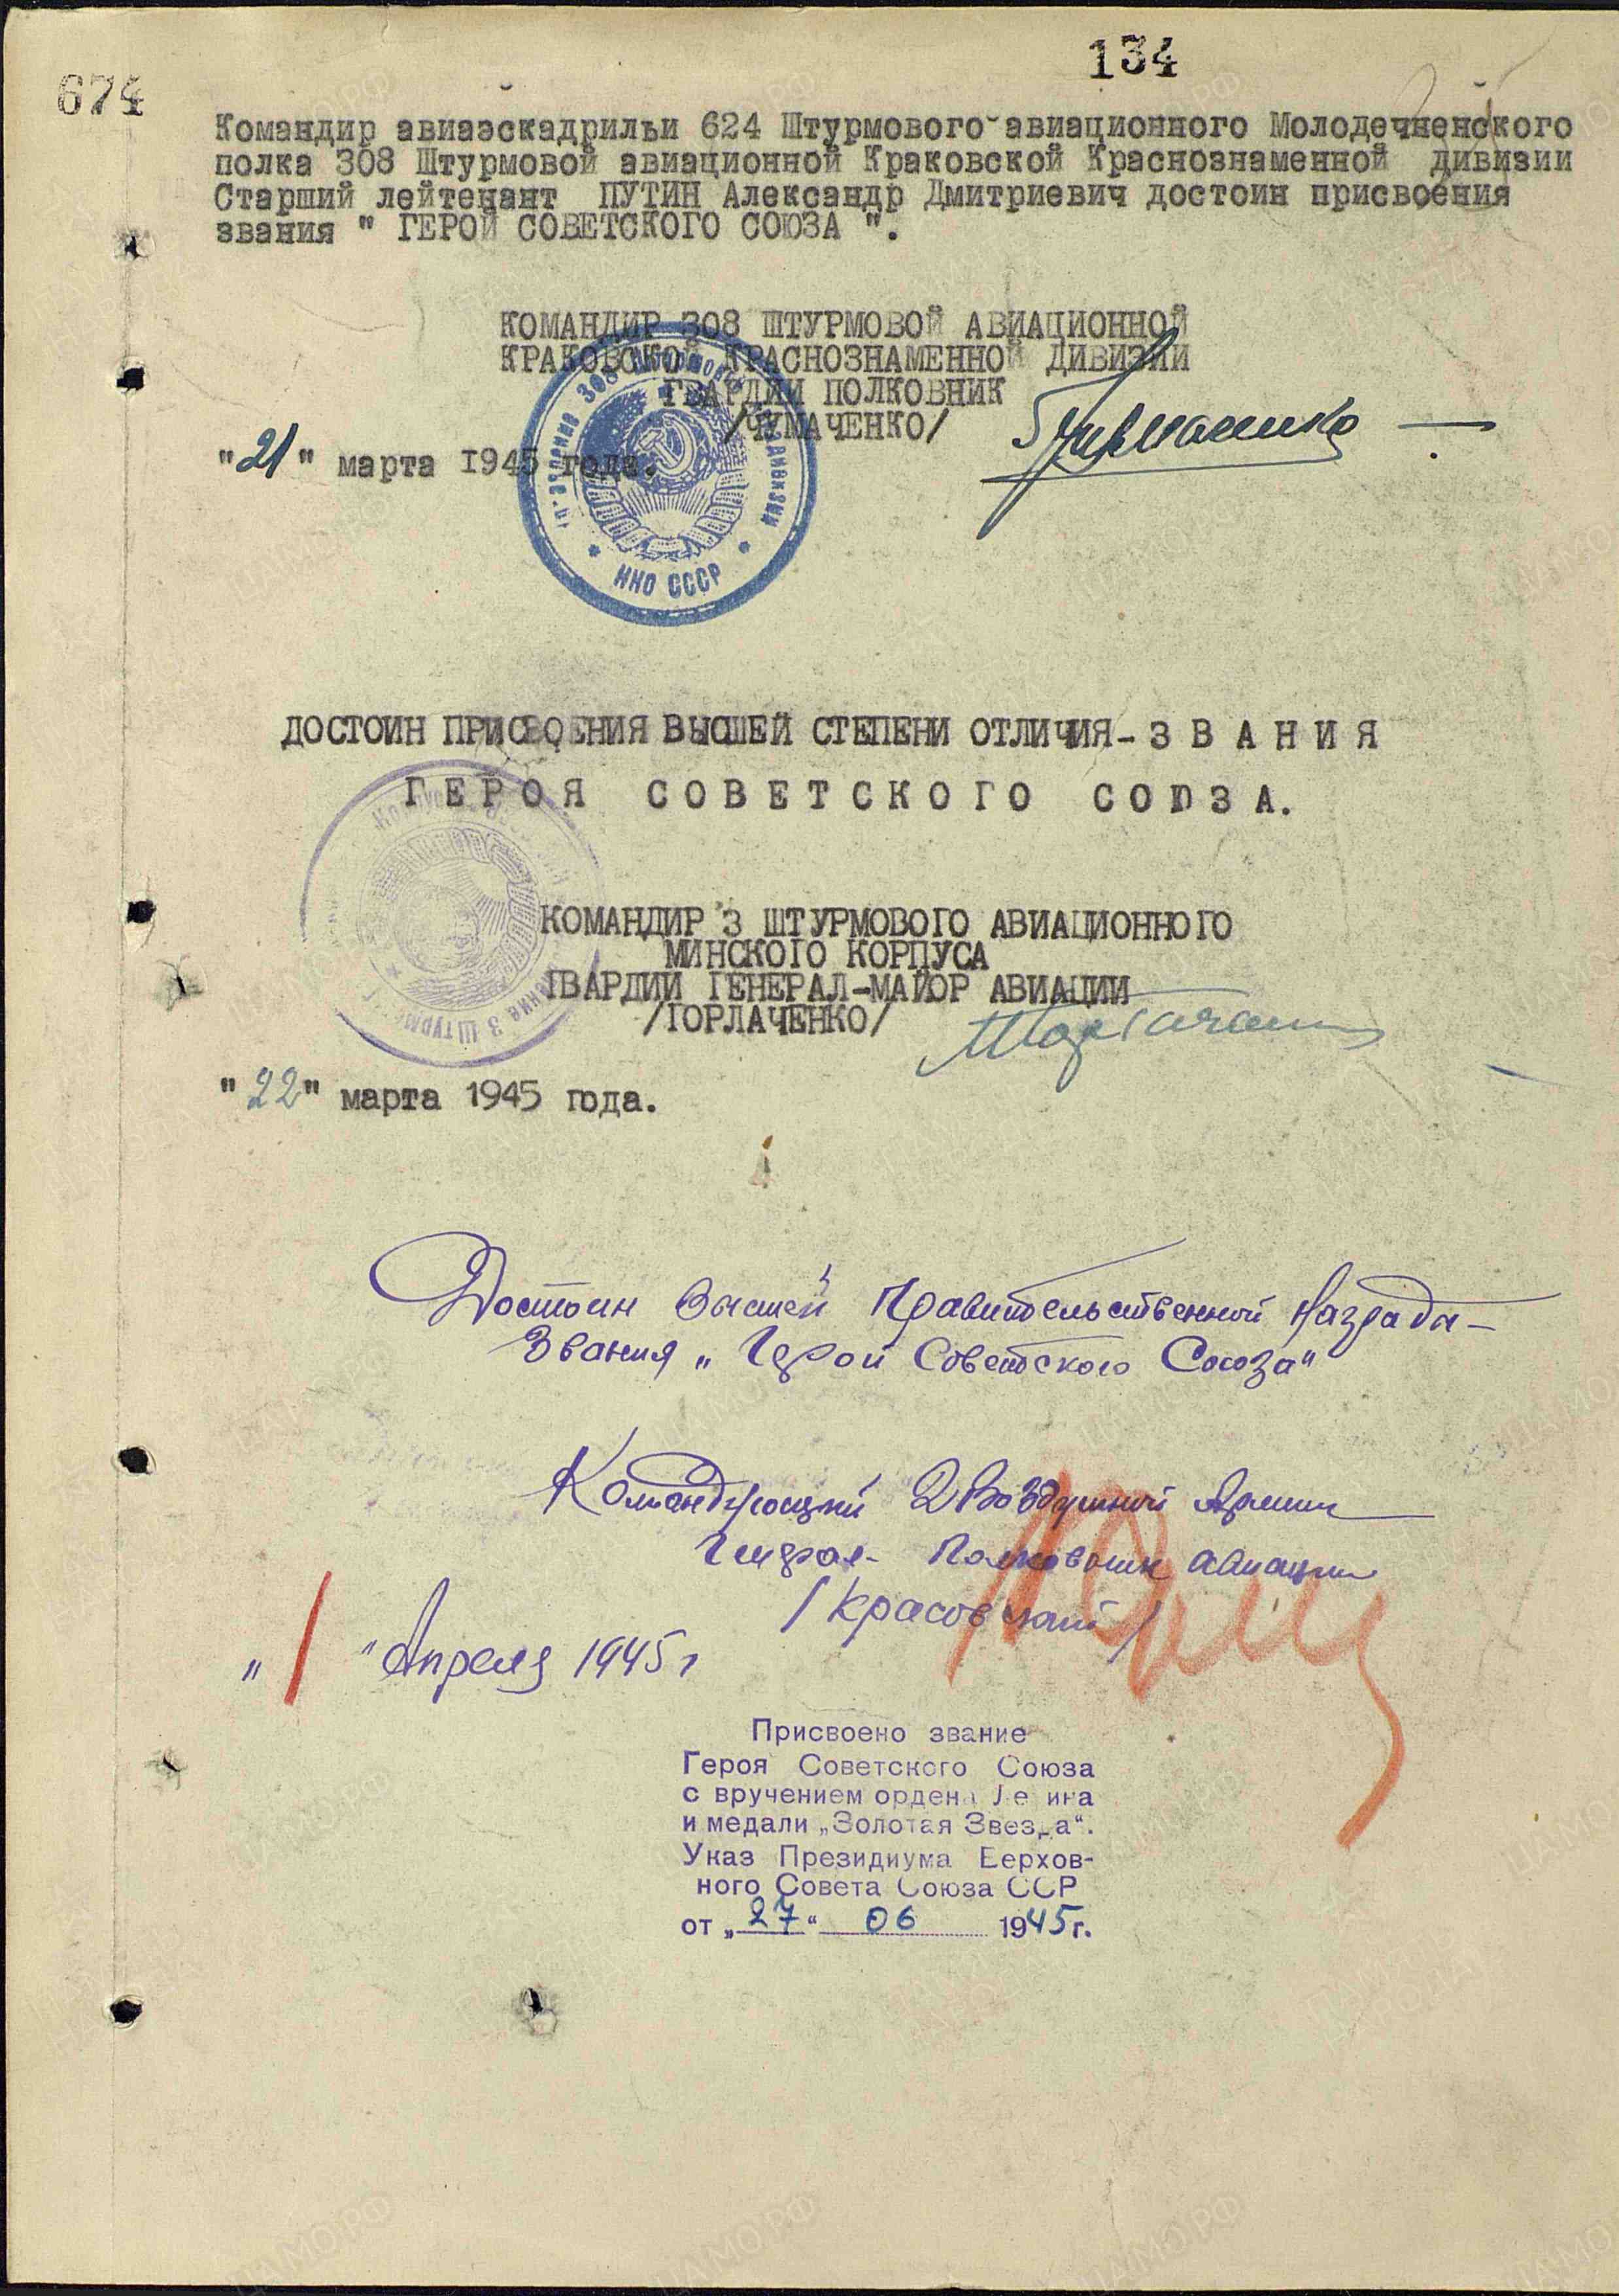 134
674
Командир авиаэскадрильи 624 Штурмового авиационного Молодечненского
полка 308 Штурмовой авиационной Краковской Краснознаменной дивизии
Старший лейтенант ПУТИН Александр Дмитриевич достоин присвоения
звания " ГЕРОЙ СОВЕТСКОГО СОЮЗА ".
КОМАНДИР 308 ШТУРМОВОЙ АВИАЦИОННОЙ
КРАКОВСКОЙ КРАСНОЗНАМЕННОЙ ДИВИЗИИ
ГВАРДИИ ПОЛКОВНИК
/ЧУМАЧЕНКО/
"21" марта 1945 года.
НКО СССР
ДОСТОИН ПРИСВОЕНИЯ ВЫСШЕЙ СТЕПЕНИ ОТЛИЧИЯ-З В А Н И Я
Г Е Р О Я С О В Е Т С К О Г О С О Ю З А.
КОМАНДИР 3 ШТУРМОВОГО АВИАЦИОННОГО
МИНСКОГО КОРПУСА
ГВАРДИИ ГЕНЕРАЛ-МАЙОР АВИАЦИИ
/ГОРЛАЧЕНКО/
"22" марта 1945 года.
Достоин Высшей Правительственной Награды –
Звания „Герой Советского Союза"
Командующий 2 Воздушной Армии
Генерал-Полковник авиации
/Красовский/
„1" Апреля 1945 г
Присвоено звание
Героя Советского Союза
с вручением ордена Ленина
и медали „Золотая Звезда“.
Указ Президиума Верхов-
ного Совета Союза ССР
от „27“ 06 1945г.